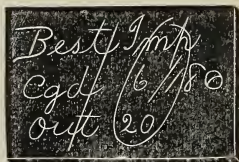 Best Imp
Cgd 6/8
out 20